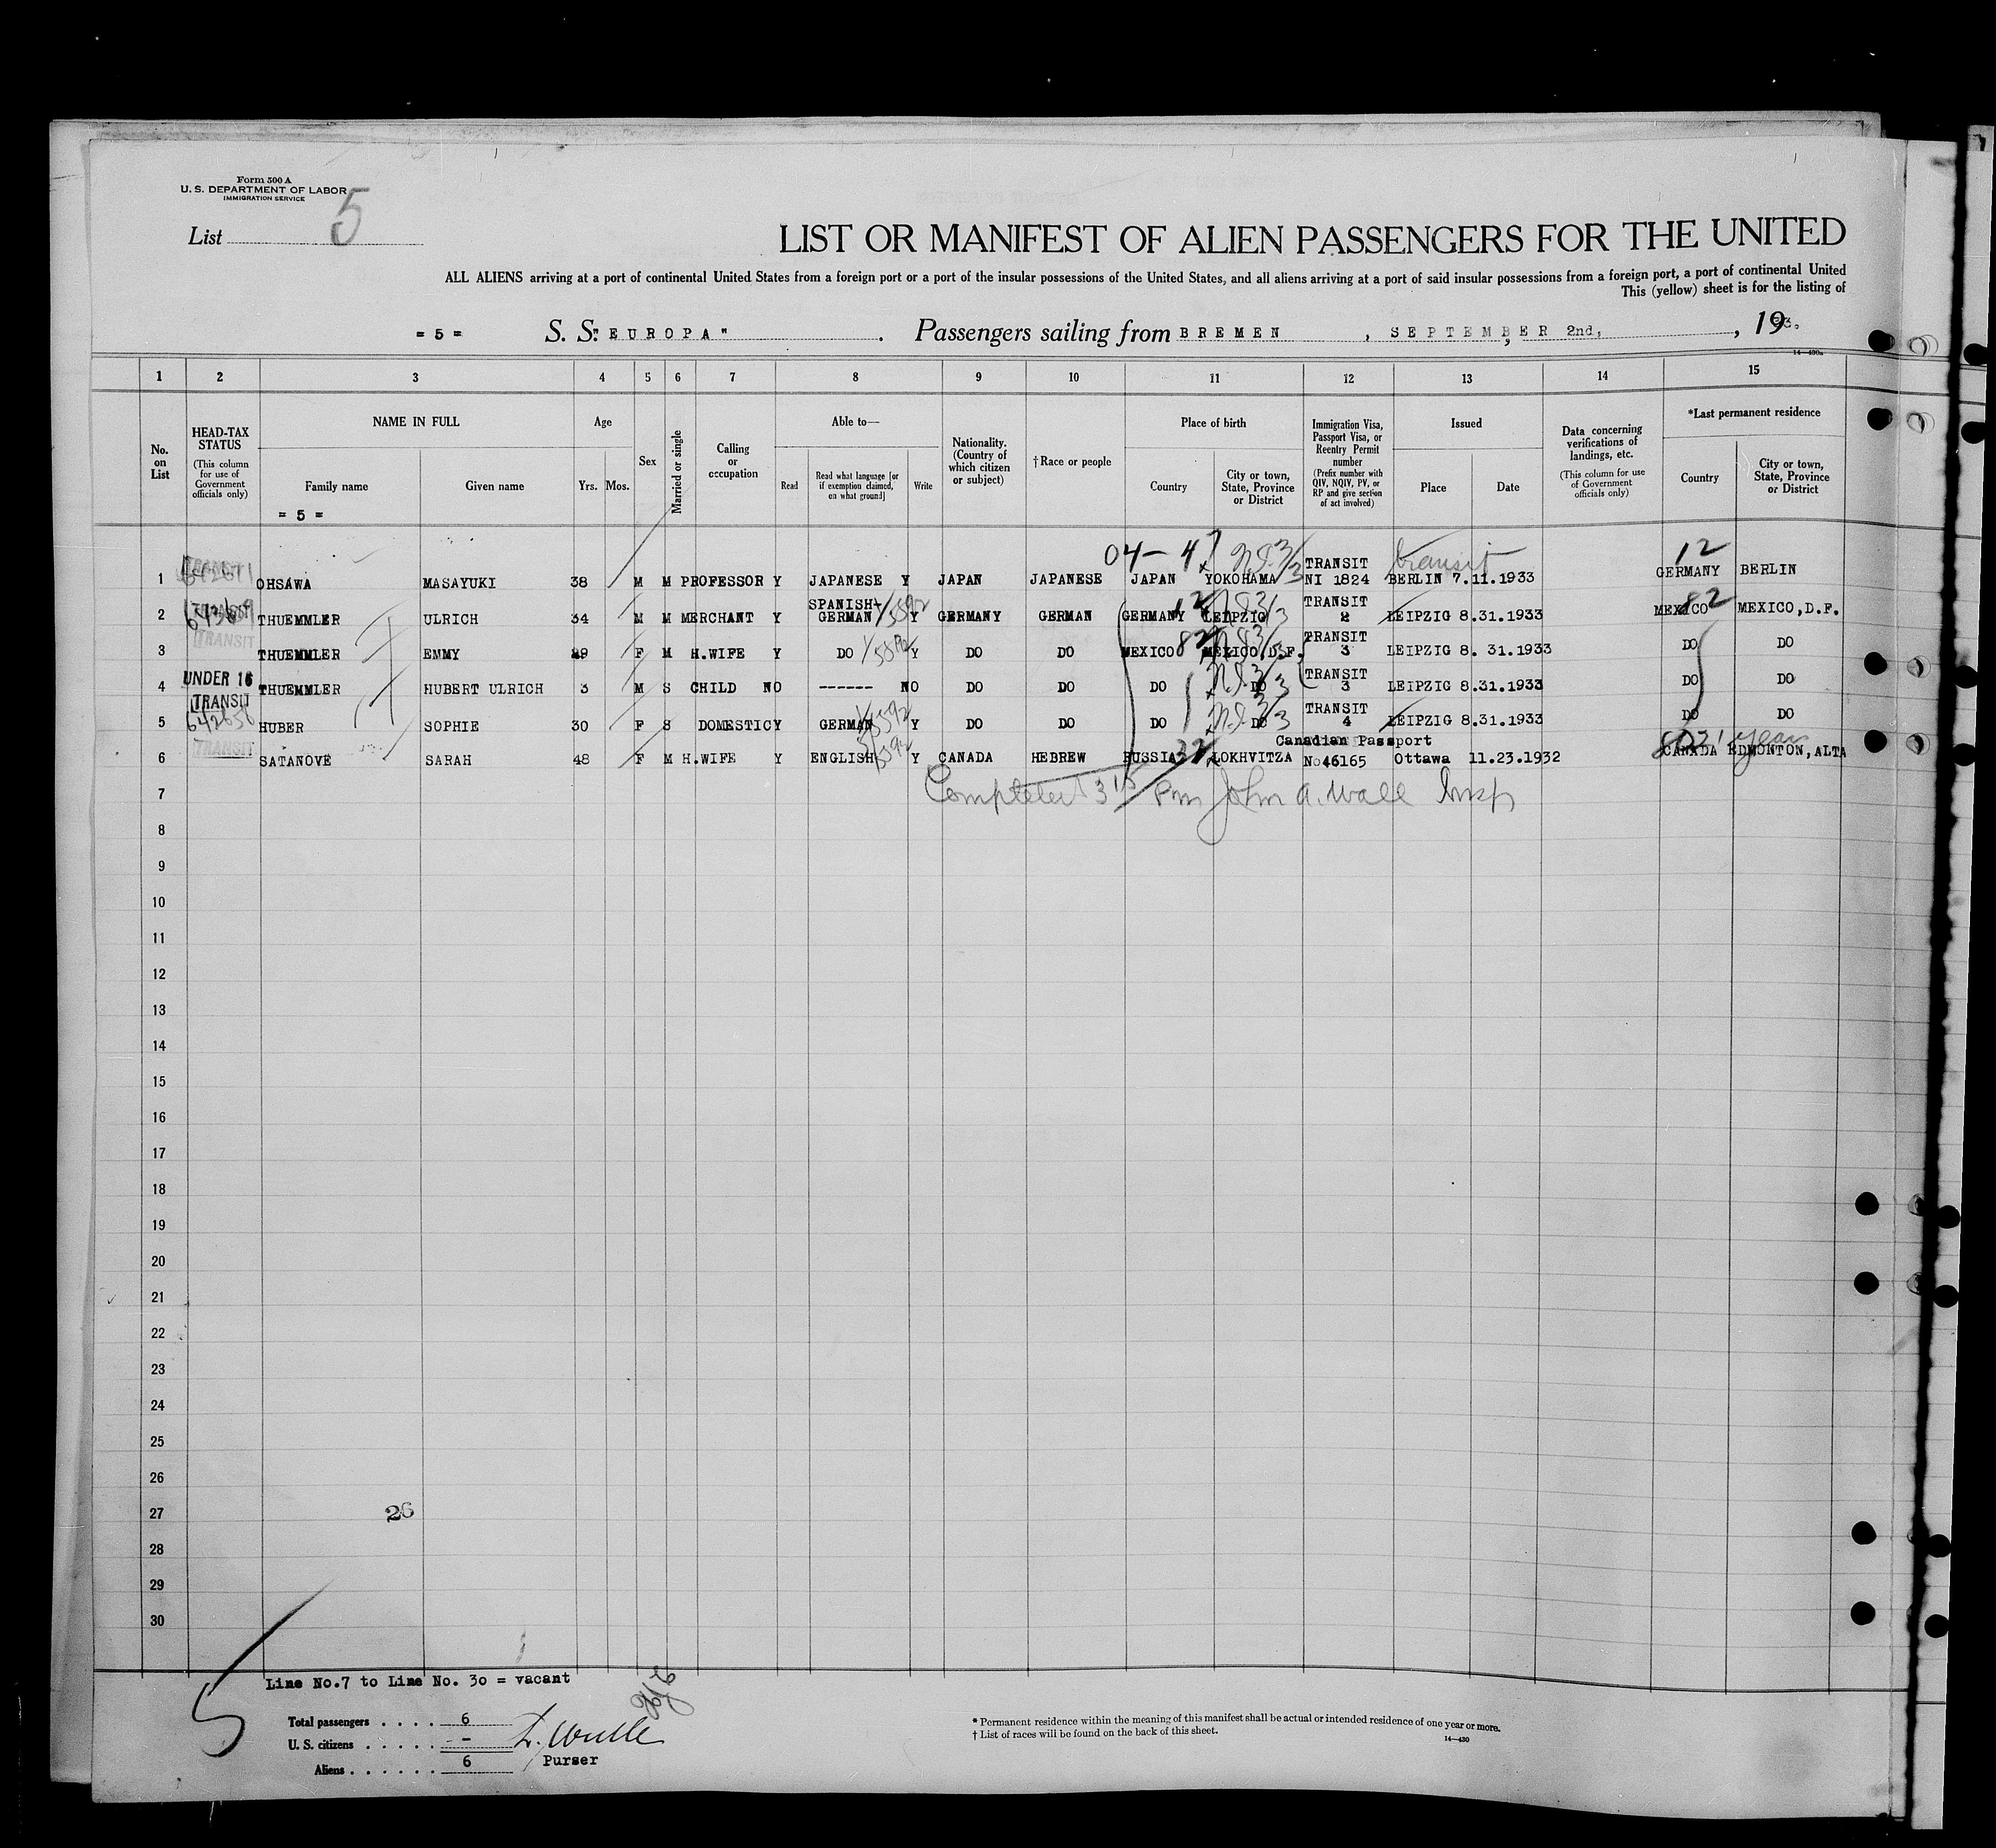 Form 500 A
U. S. DEPARTMENT OF LABOR
IMMIGRATION SERVICE
List 5
LIST OR MANIFEST OF ALIEN PASSENGERS FOR THE UNITED
ALL ALIENS arriving at a port of continental United States from a foreign port or a port of the insular possessions of the United States, and all aliens arriving at a port of said insular possessions from a foreign port, a port of continental United
This (yellow) sheet is for the listing of
= 5 = S. S. "EUROPA" . Passengers sailing from BREMEN , SEPTEMBER 2nd, , 19 33.
14—430a
1 2 3 4 5 6 7 8 9 10 11 12 13 14 15
No. on List
HEAD-TAX STATUS (This column for use of Government officials only)
NAME IN FULL
Family name
Given name
= 5 =
Age
Yrs. Mos.
Sex
Married or single
Calling or occupation
Able to—
Read
Read what language [or if exemption claimed, on what ground]
Write
Nationality. (Country of which citizen or subject)
†Race or people
Place of birth
Country
City or town, State, Province or District
Immigration Visa, Passport Visa, or Reentry Permit number (Prefix number with QIV, NQIV, PV, or RP and give section of act involved)
Issued
Place
Date
Data concerning verifications of landings, etc. (This column for use of Government officials only)
*Last permanent residence
Country
City or town, State, Province or District
04— 47 transit 12
TRANSIT
1 OHSAWA MASAYUKI 38 M M PROFESSOR Y JAPANESE Y JAPAN JAPANESE JAPAN YOKOHAMA NI 1824 BERLIN 7.11.1933 GERMANY BERLIN
SPANISH+ TRANSIT
2 THUEMMLER ULRICH 34 M M MERCHANT Y GERMAN Y GERMANY GERMAN GERMANY 12 LEIPZIG 2 LEIPZIG 8.31.1933 MEXICO 82 MEXICO,D.F.
TRANSIT TRANSIT
3 THUEMMLER EMMY F M H.WIFE Y DO Y DO DO MEXICO 82 MEXICO,D.F. 3 LEIPZIG 8. 31.1933 DO DO
UNDER 16 TRANSIT
4 THUEMMLER HUBERT ULRICH 3 M S CHILD NO ------ NO DO DO DO DO 3 LEIPZIG 8.31.1933 DO DO
TRANSIT TRANSIT
5 642658 HUBER SOPHIE 30 F S DOMESTIC Y GERMAN Y DO DO DO DO 4 LEIPZIG 8.31.1933 DO DO
TRANSIT Canadian Passport year
6 SATANOVE SARAH 48 F M H.WIFE Y ENGLISH Y CANADA HEBREW RUSSIA LOKHVITZA No 46165 Ottawa 11.23.1932 CANADA EDMONTON,ALTA
7 Completed 3 15 Pm John A. Wall Insp
8
9
10
11
12
13
14
15
16
17
18
19
20
21
22
23
24
25
26
27 26
28
29
30
Line No.7 to Line No. 30 = vacant
5
Total passengers . . . . 6
U. S. citizens . . . . . –
Aliens . . . . . . 6 Purser
* Permanent residence within the meaning of this manifest shall be actual or intended residence of one year or more.
† List of races will be found on the back of this sheet.
14—430